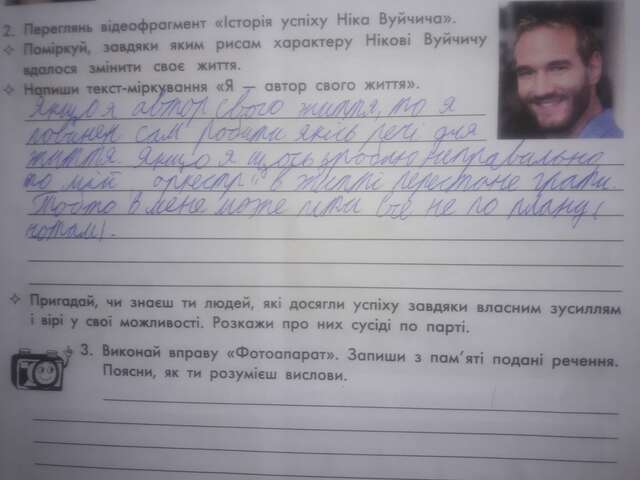 2. Переглянь відеофрагмент «Історія успіху Ніка Вуйчича».
✧ Поміркуй, завдяки яким рисам характеру Нікові Вуйчичу
вдалося змінити своє життя.
✧ Напиши текст-міркування «Я – автор свого життя».
Якщо я автор свого життя, то я
повинен сам робити якісь речі для
життя. Якщо я щось зроблю неправильно
то мій "оркестр" в житті перестане грати.
Тобто в мене може піти все не по плану(
нотам).
✧ Пригадай, чи знаєш ти людей, які досягли успіху завдяки власним зусиллям
і вірі у свої можливості. Розкажи про них сусіді по парті.
3. Виконай вправу «Фотоапарат». Запиши з пам'яті подані речення.
Поясни, як ти розумієш вислови.